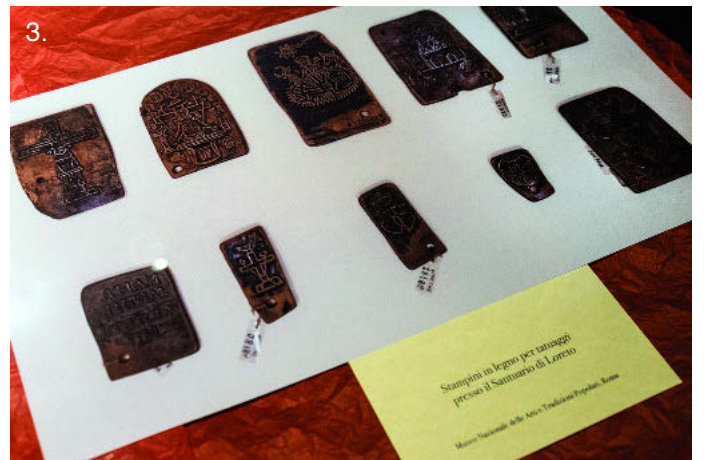 3.
Stampini in legno per tatuaggi
presso il Santuario di Loreto
Museo Nazionale delle Arti e Tradizioni Popolari, Roma